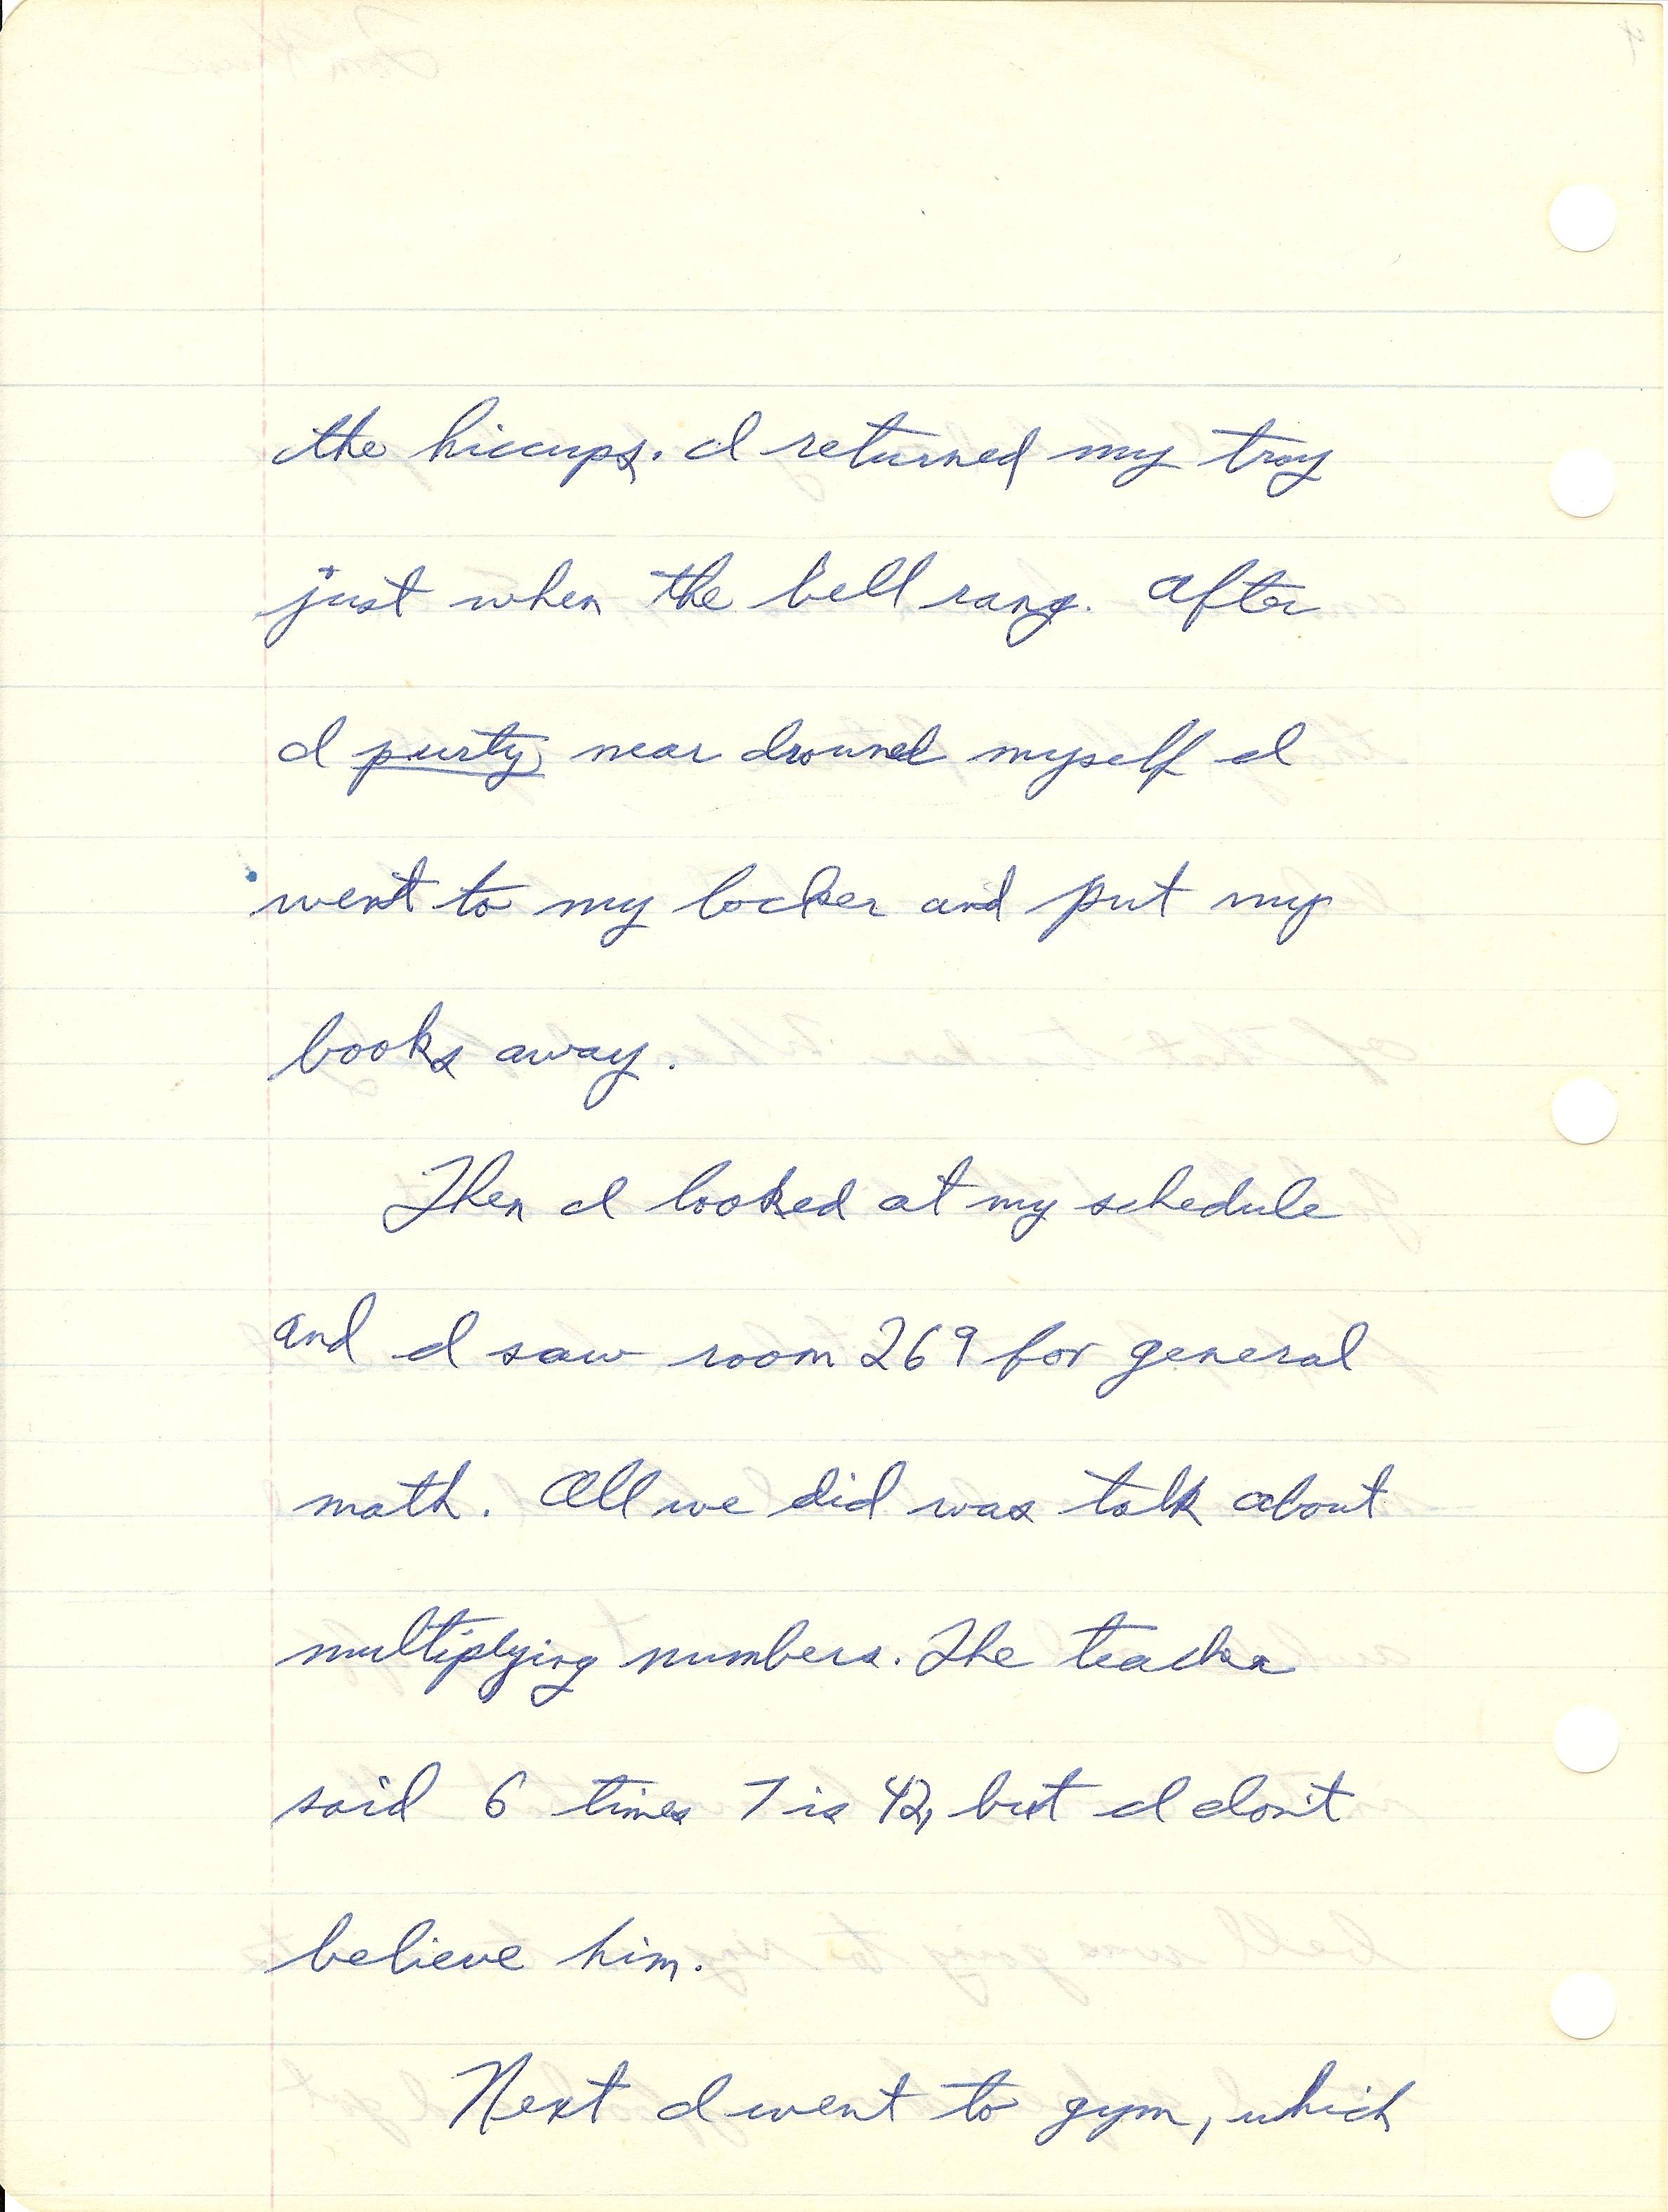 the hiccups. I returned my tray
just when the bell rang. After
I purty near drouned myself I
went to my locker and put my
books away.
Then I looked at my schedule
and I saw room 269 for general
math. All we did was talk about
multiplying numbers. The teacher
said 6 times 7 is 42, but I don't
believe him.
Next I went to gym, which